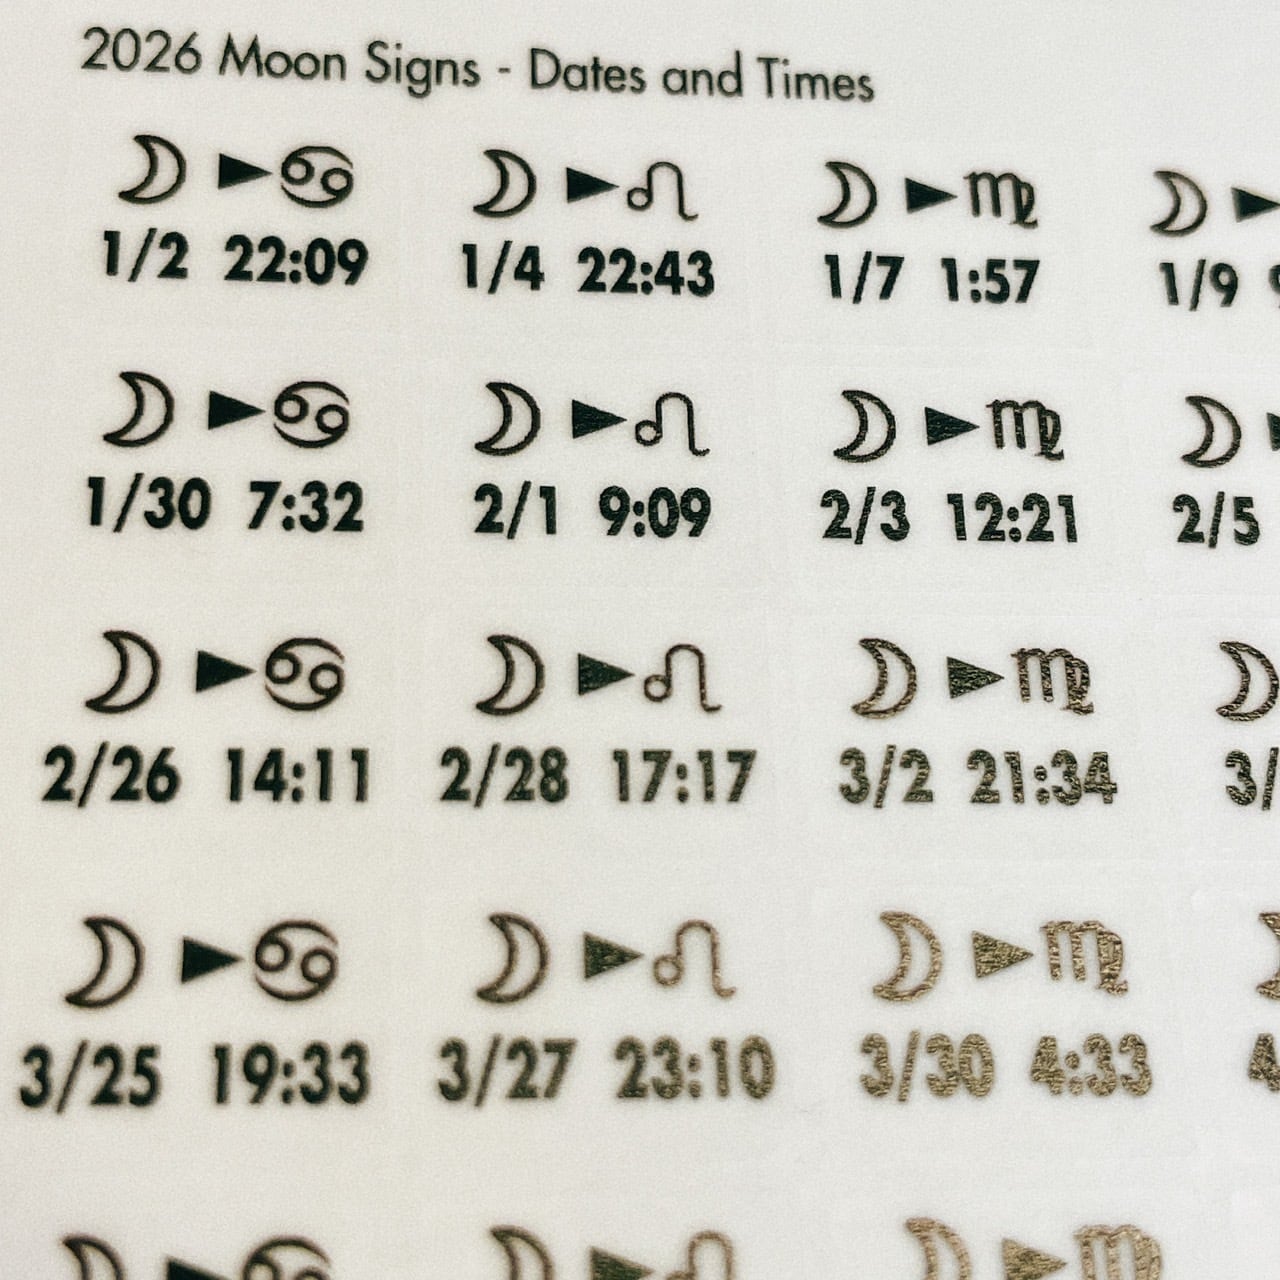 2026 Moon Signs - Dates and Times
☽ ▶ ♋ ☽ ▶ ♌ ☽ ▶ ♍ ☽ ▶
1/2 22:09 1/4 22:43 1/7 1:57 1/9
☽ ▶ ♋ ☽ ▶ ♌ ☽ ▶ ♍ ☽
1/30 7:32 2/1 9:09 2/3 12:21 2/5
☽ ▶ ♋ ☽ ▶ ♌ ☽ ▶ ♍ ☽
2/26 14:11 2/28 17:17 3/2 21:34 3/
☽ ▶ ♋ ☽ ▶ ♌ ☽ ▶ ♍
3/25 19:33 3/27 23:10 3/30 4:33 4
☽ ▶ ♋ ☽ ▶ ♌ ☽ ▶ ♍